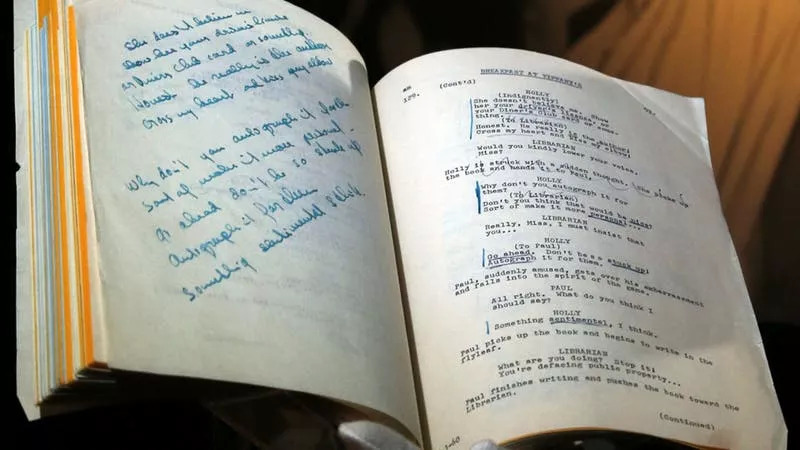 She doesn't believe me
show her your driver's license
or Diners Club card or something.
Honest he really is the author
Cross my heart and kiss my elbow
Why don't you autograph it for them
sort of make it more personal -
Go ahead don't be so stuck up
Autograph it for them
Something sentimental I think.
BREAKFAST AT TIFFANY'S
(Cont'd)
129.
HOLLY
(Indignantly)
She doesn't believe me. Show
her your driver's license or
your Diner's Club card or some-
thing.
(To Librarian)
Honest. He really is the author.
Cross my heart and kiss my elbow.
LIBRARIAN
Would you kindly lower your voice,
Miss?
Holly is struck with a sudden thought. She picks up
the book and hands it to Paul.
HOLLY
Why don't you autograph it for
them?
(To Librarian)
Don't you think that would be nice?
Sort of make it more personal...
LIBRARIAN
Really, Miss, I must insist that
you...
HOLLY
(To Paul)
Go ahead. Don't be so stuck up!
Autograph it for them.
Paul, suddenly amused, gets over his embarrassment
and falls into the spirit of the game.
PAUL
All right. What do you think I
should say?
HOLLY
Something sentimental, I think.
Paul picks up the book and begins to write in the
flyleaf.
LIBRARIAN
What are you doing? Stop it!
You're defacing public property...
Paul finishes writing and pushes the book toward the
Librarian.
(Continued)